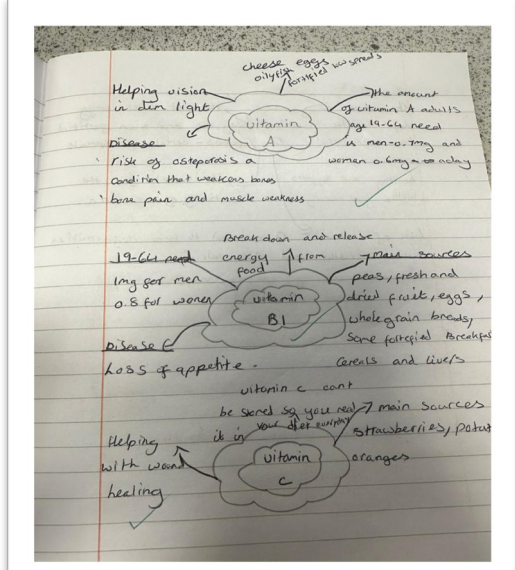 cheese eggs
oily fish fortified low spreads
Helping vision
in dim light
The amount
of vitamin A adults
age 19-64 need
is men-0.7mg and
women 0.6mg a day
vitamin
A
Disease
risk of osteoporosis a
condition that weakens bones
bone pain and muscle weakness
Break down and release
energy from
food
19-64 need
1mg for men
0.8 for women
main sources
peas, fresh and
dried fruit, eggs,
wholegrain breads,
some fortefied Breakfas
cereals and livers
vitamin
B1
Disease
Loss of appetite.
vitamin c cant
be stored so you
it in your diet
main sources
strawberries, potat
oranges
Helping
with wound
healing
vitamin
C